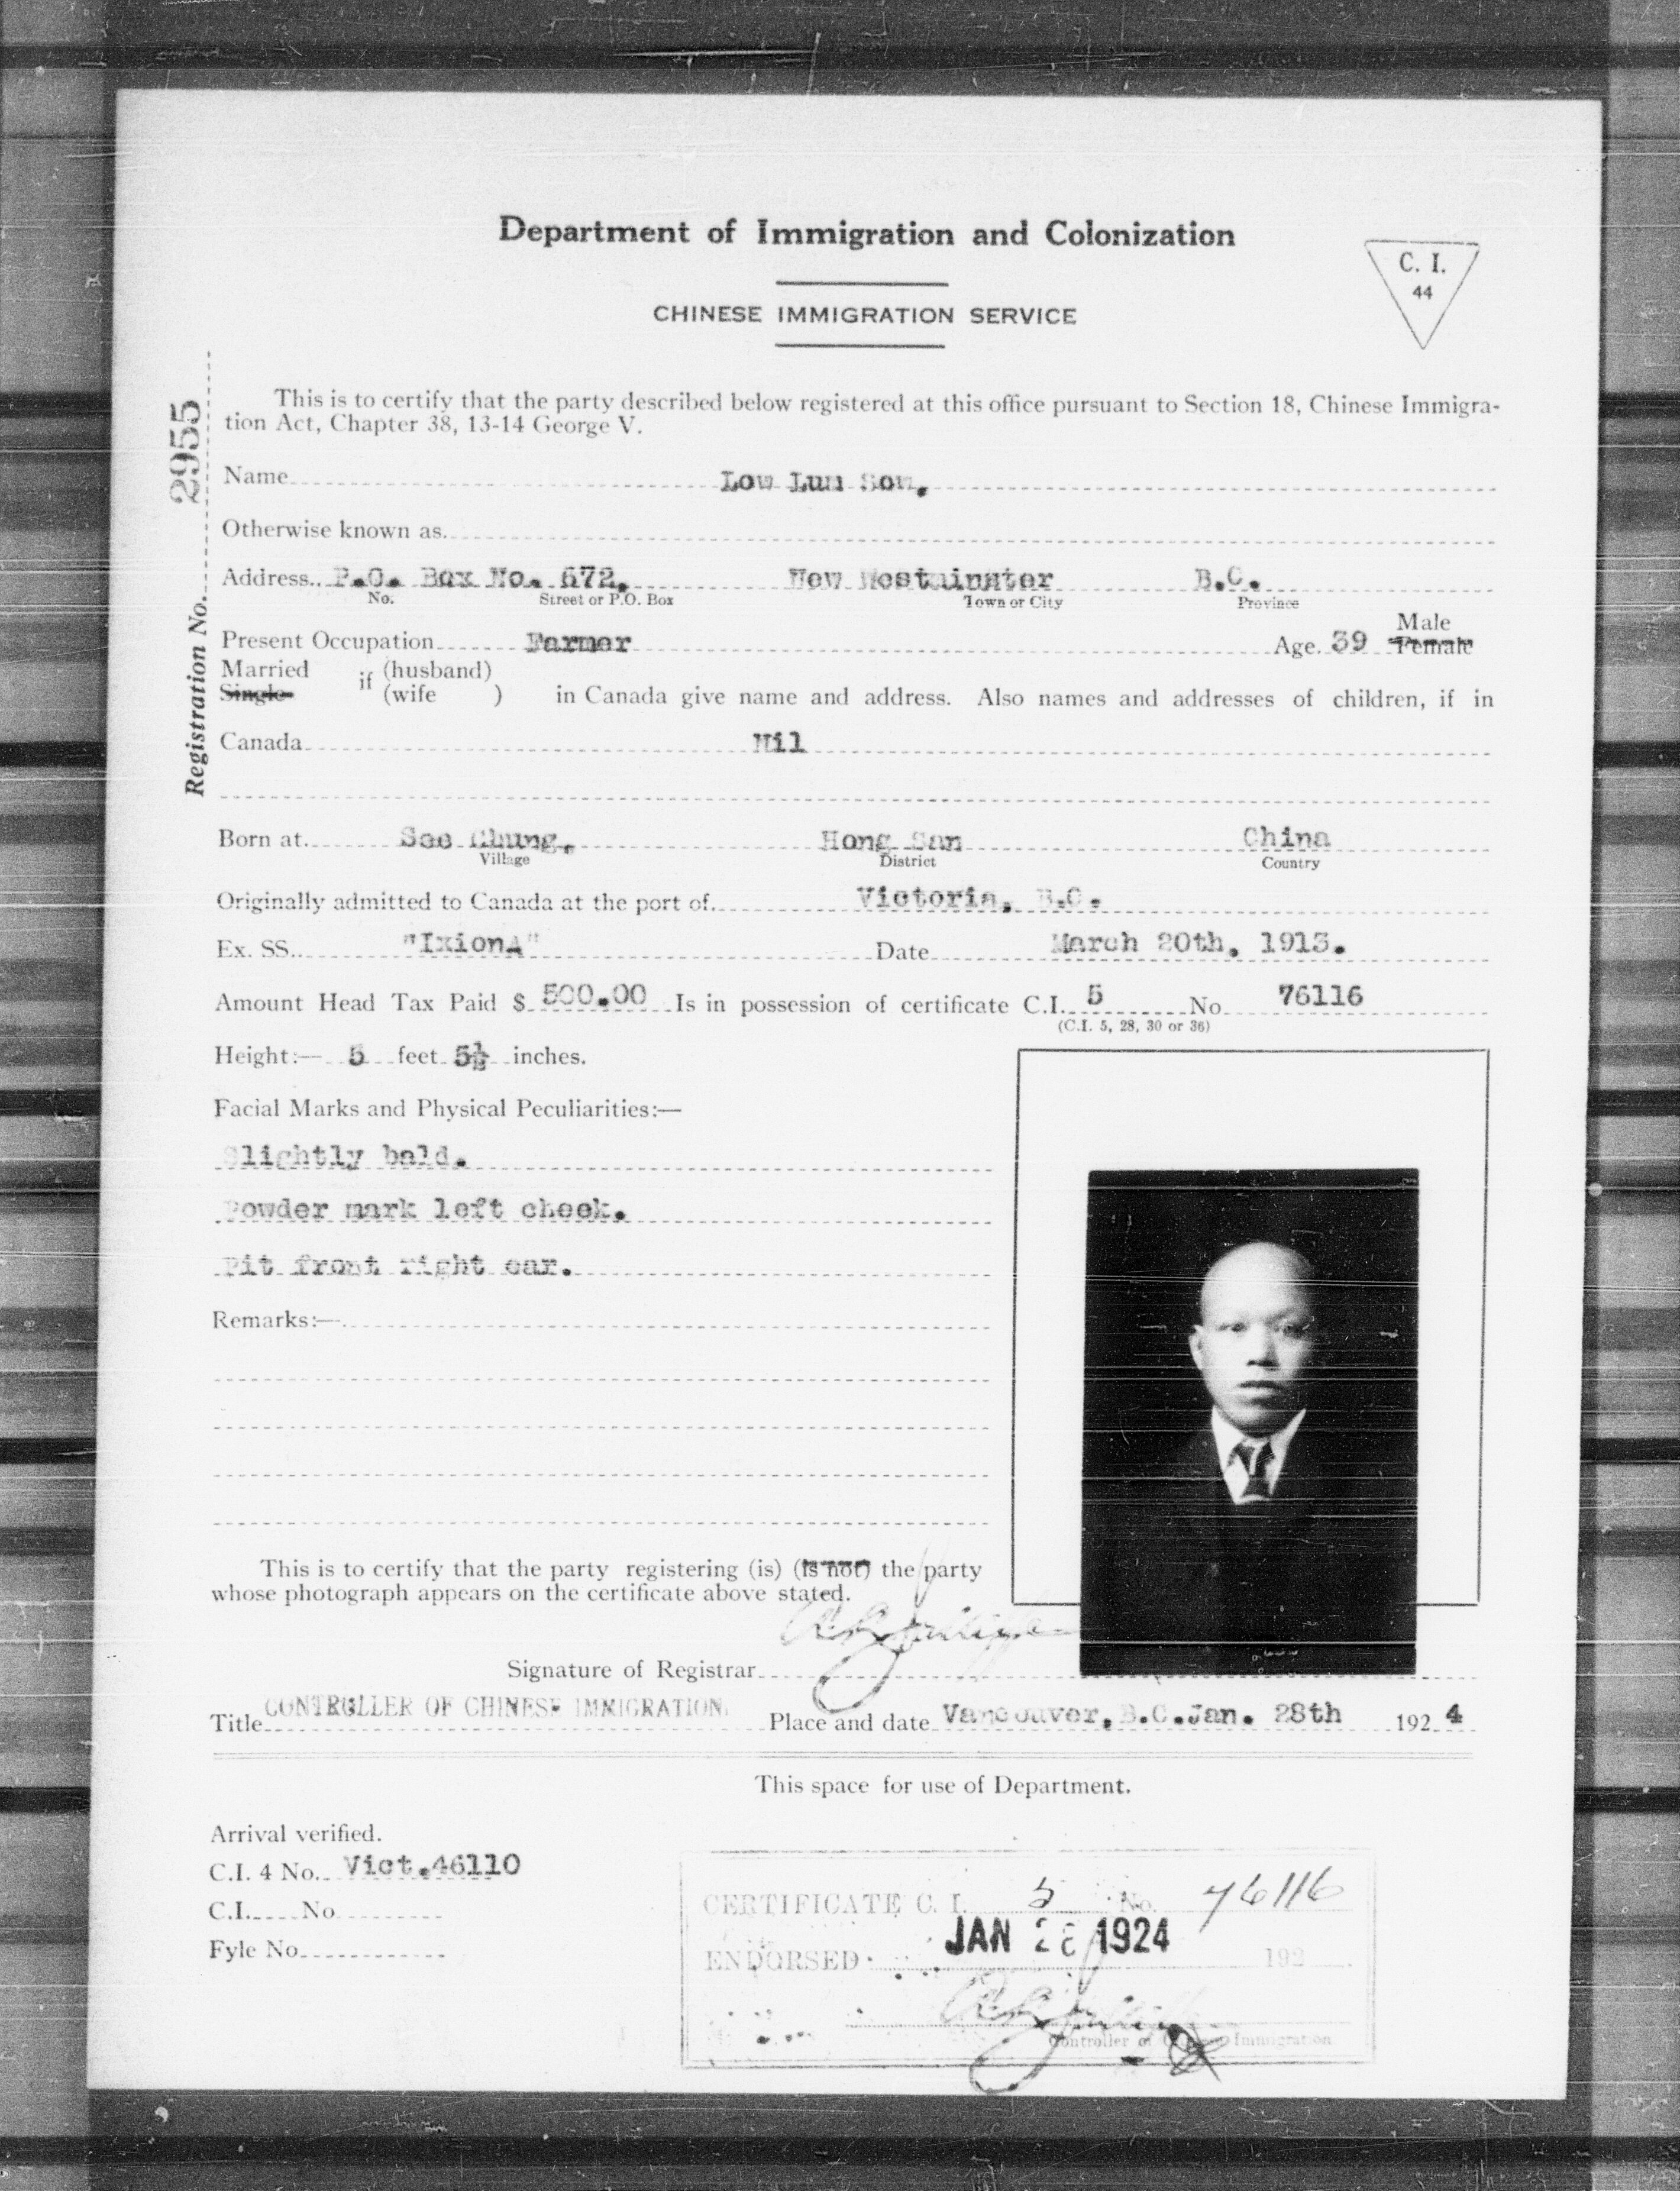 Department of Immigration and Colonization
C. I.
44
CHINESE IMMIGRATION SERVICE
Registration No. 2955
This is to certify that the party described below registered at this office pursuant to Section 18, Chinese Immigra-
tion Act, Chapter 38, 13-14 George V.
Name Low Lun Sow.
Otherwise known as
Address P.O. Box No. 672, New Westminster B.C.
No. Street or P.O. Box Town or City Province
Present Occupation Farmer Age. 39 Male Female
Married if (husband)
Single (wife ) in Canada give name and address. Also names and addresses of children, if in
Canada Nil
Born at See Chung, Hong San China
Village District Country
Originally admitted to Canada at the port of Victoria, B.C.
Ex. SS. "IxionA" Date March 20th, 1913.
Amount Head Tax Paid $ 500.00 Is in possession of certificate C.I. 5 No 76116
(C.I. 5, 28, 30 or 36)
Height:— 5 feet 5½ inches.
Facial Marks and Physical Peculiarities:—
Slightly bald.
Powder mark left cheek.
Pit front right ear.
Remarks:—
This is to certify that the party registering (is) (is not) the party
whose photograph appears on the certificate above stated.
Signature of Registrar
Title CONTROLLER OF CHINESE IMMIGRATION Place and date Vancouver, B.C. Jan. 28th 192 4
This space for use of Department.
Arrival verified.
C.I. 4 No. Vict.46110
C.I. No
Fyle No
CERTIFICATE C. I. 5 No. 76116
JAN 28 1924
ENDORSED 192
Controller of Chinese Immigration